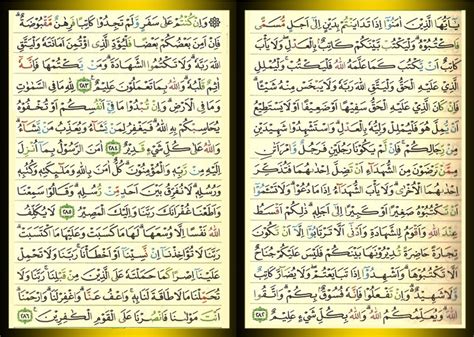 يَٰٓأَيُّهَا ٱلَّذِينَ ءَامَنُوٓا۟ إِذَا تَدَايَنتُم بِدَيْنٍ إِلَىٰٓ أَجَلٍ مُّسَمًّى
فَٱكْتُبُوهُ ۚ وَلْيَكْتُب بَّيْنَكُمْ كَاتِبٌۢ بِٱلْعَدْلِ ۚ وَلَا يَأْبَ
كَاتِبٌ أَن يَكْتُبَ كَمَا عَلَّمَهُ ٱللَّهُ ۚ فَلْيَكْتُبْ وَلْيُمْلِلِ
ٱلَّذِى عَلَيْهِ ٱلْحَقُّ وَلْيَتَّقِ ٱللَّهَ رَبَّهُۥ وَلَا يَبْخَسْ مِنْهُ شَيْـًٔا ۚ
فَإِن كَانَ ٱلَّذِى عَلَيْهِ ٱلْحَقُّ سَفِيهًا أَوْ ضَعِيفًا أَوْ لَا يَسْتَطِيعُ
أَن يُمِلَّ هُوَ فَلْيُمْلِلْ وَلِيُّهُۥ بِٱلْعَدْلِ ۚ وَٱسْتَشْهِدُوا۟ شَهِيدَيْنِ
مِن رِّجَالِكُمْ ۖ فَإِن لَّمْ يَكُونَا رَجُلَيْنِ فَرَجُلٌ وَٱمْرَأَتَانِ
مِمَّن تَرْضَوْنَ مِنَ ٱلشُّهَدَآءِ أَن تَضِلَّ إِحْدَىٰهُمَا فَتُذَكِّرَ
إِحْدَىٰهُمَا ٱلْأُخْرَىٰ ۚ وَلَا يَأْبَ ٱلشُّهَدَآءُ إِذَا مَا دُعُوا۟ ۚ وَلَا تَسْـَٔمُوٓا۟
أَن تَكْتُبُوهُ صَغِيرًا أَوْ كَبِيرًا إِلَىٰٓ أَجَلِهِۦ ۚ ذَٰلِكُمْ أَقْسَطُ
عِندَ ٱللَّهِ وَأَقْوَمُ لِلشَّهَٰدَةِ وَأَدْنَىٰٓ أَلَّا تَرْتَابُوٓا۟ ۖ إِلَّآ أَن تَكُونَ
تِجَٰرَةً حَاضِرَةً تُدِيرُونَهَا بَيْنَكُمْ فَلَيْسَ عَلَيْكُمْ جُنَاحٌ
أَلَّا تَكْتُبُوهَا ۗ وَأَشْهِدُوٓا۟ إِذَا تَبَايَعْتُمْ ۚ وَلَا يُضَآرَّ كَاتِبٌ
وَلَا شَهِيدٌ ۚ وَإِن تَفْعَلُوا۟ فَإِنَّهُۥ فُسُوقٌۢ بِكُمْ ۗ وَٱتَّقُوا۟
ٱللَّهَ ۖ وَيُعَلِّمُكُمُ ٱللَّهُ ۗ وَٱللَّهُ بِكُلِّ شَىْءٍ عَلِيمٌ ٢٨٢
۞ وَإِن كُنتُمْ عَلَىٰ سَفَرٍ وَلَمْ تَجِدُوا۟ كَاتِبًا فَرِهَٰنٌ مَّقْبُوضَةٌ ۖ
فَإِنْ أَمِنَ بَعْضُكُم بَعْضًا فَلْيُؤَدِّ ٱلَّذِى ٱؤْتُمِنَ أَمَٰنَتَهُۥ وَلْيَتَّقِ
ٱللَّهَ رَبَّهُۥ ۗ وَلَا تَكْتُمُوا۟ ٱلشَّهَٰدَةَ ۚ وَمَن يَكْتُمْهَا فَإِنَّهُۥٓ
ءَاثِمٌ قَلْبُهُۥ ۗ وَٱللَّهُ بِمَا تَعْمَلُونَ عَلِيمٌ ٢٨٣ لِّلَّهِ مَا فِى ٱلسَّمَٰوَٰتِ
وَمَا فِى ٱلْأَرْضِ ۗ وَإِن تُبْدُوا۟ مَا فِىٓ أَنفُسِكُمْ أَوْ تُخْفُوهُ
يُحَاسِبْكُم بِهِ ٱللَّهُ ۖ فَيَغْفِرُ لِمَن يَشَآءُ وَيُعَذِّبُ مَن يَشَآءُ ۗ
وَٱللَّهُ عَلَىٰ كُلِّ شَىْءٍ قَدِيرٌ ٢٨٤ ءَامَنَ ٱلرَّسُولُ بِمَآ أُنزِلَ إِلَيْهِ
مِن رَّبِّهِۦ وَٱلْمُؤْمِنُونَ ۚ كُلٌّ ءَامَنَ بِٱللَّهِ وَمَلَٰٓئِكَتِهِۦ وَكُتُبِهِۦ
وَرُسُلِهِۦ لَا نُفَرِّقُ بَيْنَ أَحَدٍ مِّن رُّسُلِهِۦ ۚ وَقَالُوا۟ سَمِعْنَا
وَأَطَعْنَا ۖ غُفْرَانَكَ رَبَّنَا وَإِلَيْكَ ٱلْمَصِيرُ ٢٨٥ لَا يُكَلِّفُ
ٱللَّهُ نَفْسًا إِلَّا وُسْعَهَا ۚ لَهَا مَا كَسَبَتْ وَعَلَيْهَا مَا ٱكْتَسَبَتْ ۗ
رَبَّنَا لَا تُؤَاخِذْنَآ إِن نَّسِينَآ أَوْ أَخْطَأْنَا ۚ رَبَّنَا وَلَا تَحْمِلْ
عَلَيْنَآ إِصْرًا كَمَا حَمَلْتَهُۥ عَلَى ٱلَّذِينَ مِن قَبْلِنَا ۚ رَبَّنَا وَلَا
تُحَمِّلْنَا مَا لَا طَاقَةَ لَنَا بِهِۦ ۖ وَٱعْفُ عَنَّا وَٱغْفِرْ لَنَا وَٱرْحَمْنَآ ۚ
أَنتَ مَوْلَىٰنَا فَٱنصُرْنَا عَلَى ٱلْقَوْمِ ٱلْكَٰفِرِينَ ٢٨٦